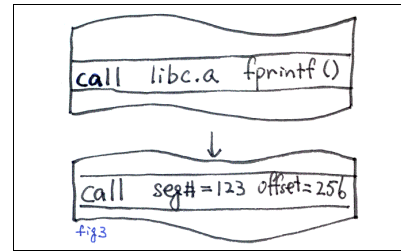 call libc.a fprintf()
call seg#=123 offset=256
fig3